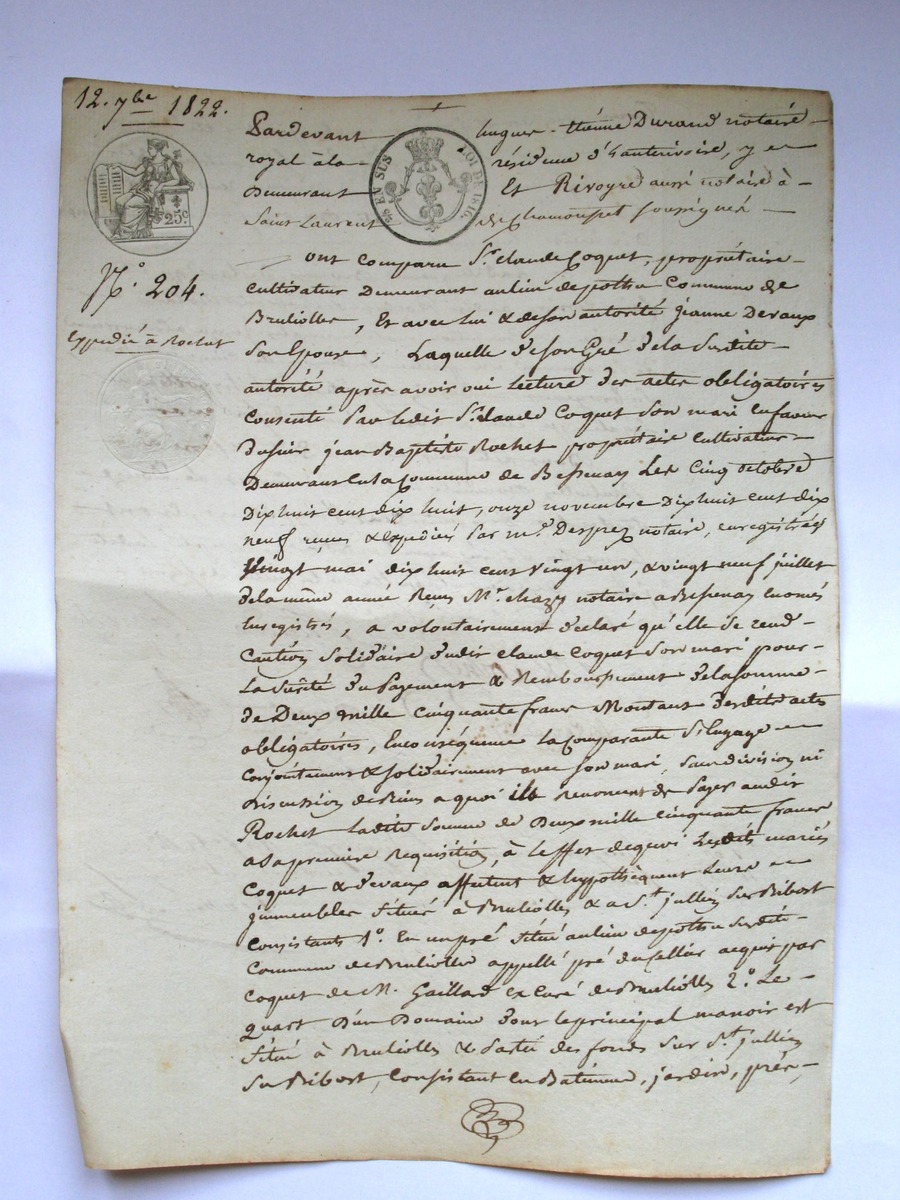 12. 7bre 1822.
25c
25 EN SUS
LOI DE 1816.
N.o 204.
Expédié à Rochet
Pardevant hugues-thiénne Durand notaire
royal à la résidence d'hauterivoire, y
Demeurant Et Rivoyre aussi notaire à
Saint Laurent de chamousset soussignés
ont comparu Sr. claude Coquet, propriétaire
cultivateur Demeurant au lieu de pothu Commune de
Brulioles, Et avec lui & de son autorité jeanne Devaux
Son Epouse, Laquelle de son Gré & de la Susdite
autorité après avoir oui Lecture des actes obligatoires
consenti Par ledit Sr. claude Coquet Son mari en faveur
du sieur jean Baptiste Rochet propriétaire Cultivateur
Demeurant en la Commune de Bessenay Les Cinq octobre
Dix huit cent dix huit, onze novembre Dix huit cent dix
neuf reçues & expédiés Par me. Desprez notaire, enregistrés
vingt mai dix huit cent vingt un, & vingt neuf juillet
de la même année Reçus Me. chazy notaire a Bessenay
Enregistrés, a volontairement déclaré qu'elle se rend
Caution Solidaire dudit claude Coquet Son mari pour
La Sûreté du Payement & Remboursement de la Somme
de Deux mille cinquante francs Montant desdits actes
obligatoires, En conséquence La Comparante S'Engage
conjointement & solidairement avec son mari, Sans division ni
discussion de Biens a quoi ils Renoncent de Payer audit
Rochet Ladite Somme de Deux mille cinquante francs
a Sa première Réquisition, à l'effet de quoi Lesdits mariés
Coquet & devaux affectent & hypothèquent Leurs
jmmeubles Situés à Brulioles & a St. jullien Sur Bibost
Consistants 1o. En un pré Situé au lieu de pothu Susdite
Commune de Brulioles appellé pré du Cellier acquis par
Coquet de M. Gaillard ex Curé de Brulioles 2o. Le
quart D'un Domaine dont le principal manoir est
Situé à Brulioles & Partie des fonds Sur St. jullien
Sur Bibost, Consistant En Batiments, jardin, prés,